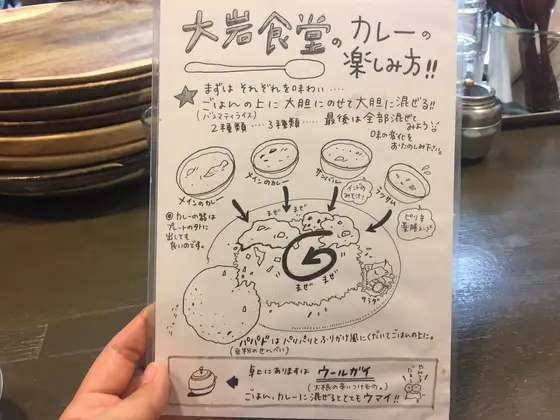 大岩食堂の カレーの
楽しみ方!!
まずは それぞれを味わい‥‥
ごはんの上に 大胆にのせて大胆に混ぜる!!
(バスマティライス)
2種類‥‥3種類‥‥ 最後は全部混ぜて
みよう
味の変化を
おたのしみ下さい。
メインのカレー
メインのカレー
サンバル
インドのみそ汁!
ラッサム
ピリ辛
薬膳スープ
◎カレーの器は
プレートの外に
出しても
良いのです。
まぜ まぜ
まぜ まぜ
サラダ
パリパリ
パパドは パリパリとふりかけ風にくだいてごはんの上に。
(豆粉のせんべい)
卓上にありますは ウールガイ
(大根の辛いつけもの。)
ごはん、カレーに混ぜるととてもウマイ!!